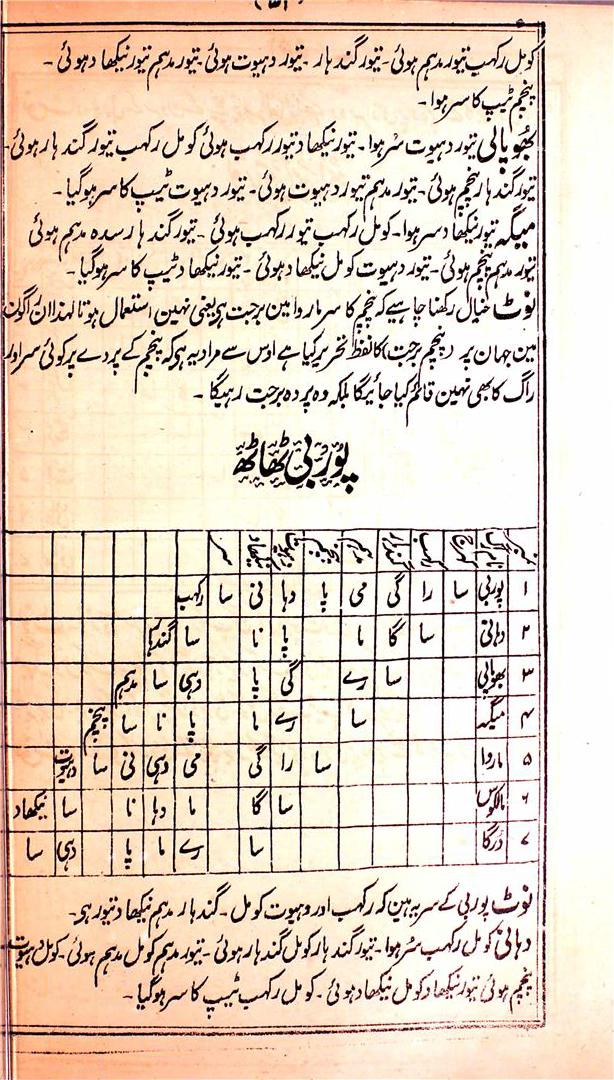 (۳۱)
کومل رکہب تیور مدہم ہوئی ۔ تیور گندہار ۔ تیور دہیوت ہوئی ۔ تیور مدہم تیور نیکھاد ہوئی ۔
پنچم ٹیپ کا سر ہوا ۔
بھوپالی تیور دہیوت سُر ہوا ۔ تیور نیکھاد تیور رکہب ہوئی کومل رکہب تیور گندہار ہوئی ۔
تیور گندہار پنچم ہوئی ۔ تیور مدہم تیور دہیوت ہوئی ۔ تیور دہیوت ٹیپ کا سر ہوگیا ۔
میگہ تیور نیکھاد سر ہوا ۔ کومل رکہب تیور رکہب ہوئی ۔ تیور گندہار سدہ مدہم ہوئی
تیور مدہم پنچم ہوئی ۔ تیور دہیوت کومل نیکھاد ہوئی ۔ تیور نیکھاد ٹیپ کا سر ہوگیا ۔
نوٹ خیال رکھنا چاہیے کہ پنچم کا سر ماروا مین برجت ہی یعنی نہین استعمال ہوتا لہذا ان راگون
مین جہان پر (پنچم برجت) کا لفظ تحریر کیا ہے اوس سے مراد یہ ہی کہ پنچم کے پردے پر کوئی سر اور
راگ کا بھی نہین قائم کیا جائیگا بلکہ وہ پردہ برجت رہیگا ۔
پوربی ٹھاٹھ
نمبر نام راگ کھرج رکہب گندہار مدہم پنچم دہیوت نیکھاد سر
۱ پوربی سا را گی می پا دہا نی سا رکہب
۲ دہانی سا گا ما پا نا سا گندہار
۳ بھوپالی سا رے گی پا دہی سا مدہم
۴ میگہ سا رے ما پا نا سا پنچم
۵ ماروا سا را گی می دہی نی سا دہیوت
۶ مالکوس سا گا ما دہا نا سا نیکھاد
۷ دُرگا سا رے ما پا دہی سا
نوٹ پوربی کے سر یہ ہین کہ رکہب اور دہیوت کومل ۔ گندہار مدہم نیکھاد تیور ہی ۔
دہانی کومل رکہب سُر ہوا ۔ تیور گندہار کومل گندہار ہوئی ۔ تیور مدہم کومل مدہم ہوئی ۔ کومل دہیوت
پنچم ہوئی تیور نیکھاد کومل نیکھاد ہوئی ۔ کومل رکہب ٹیپ کا سر ہوگیا ۔